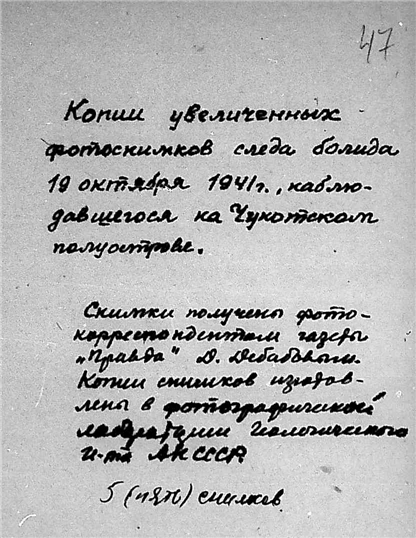 47
Копии увеличенных
фотоснимков следа болида
19 октября 1941 г., наблю-
давшегося на Чукотском
полуострове.
Снимки получены фото-
корреспондентом газеты
„Правда" Д. Дебабовым.
Копии снимков изготов-
лены в фотографической
лаборатории Геологического
И-та АН СССР.
5 (пять) снимков